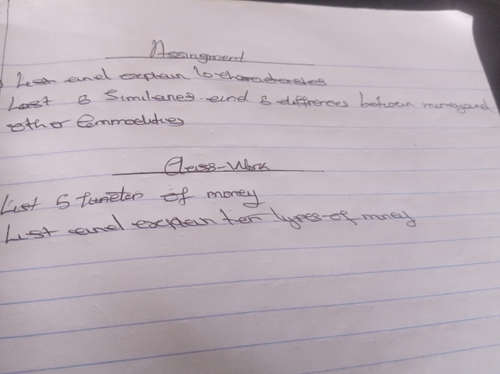 Assingment
List and explain 10 characteristics
List 5 Similaries and 5 differences between money and
other Commodities
Class-Work
List 5 function of money
List and explain ten types of money